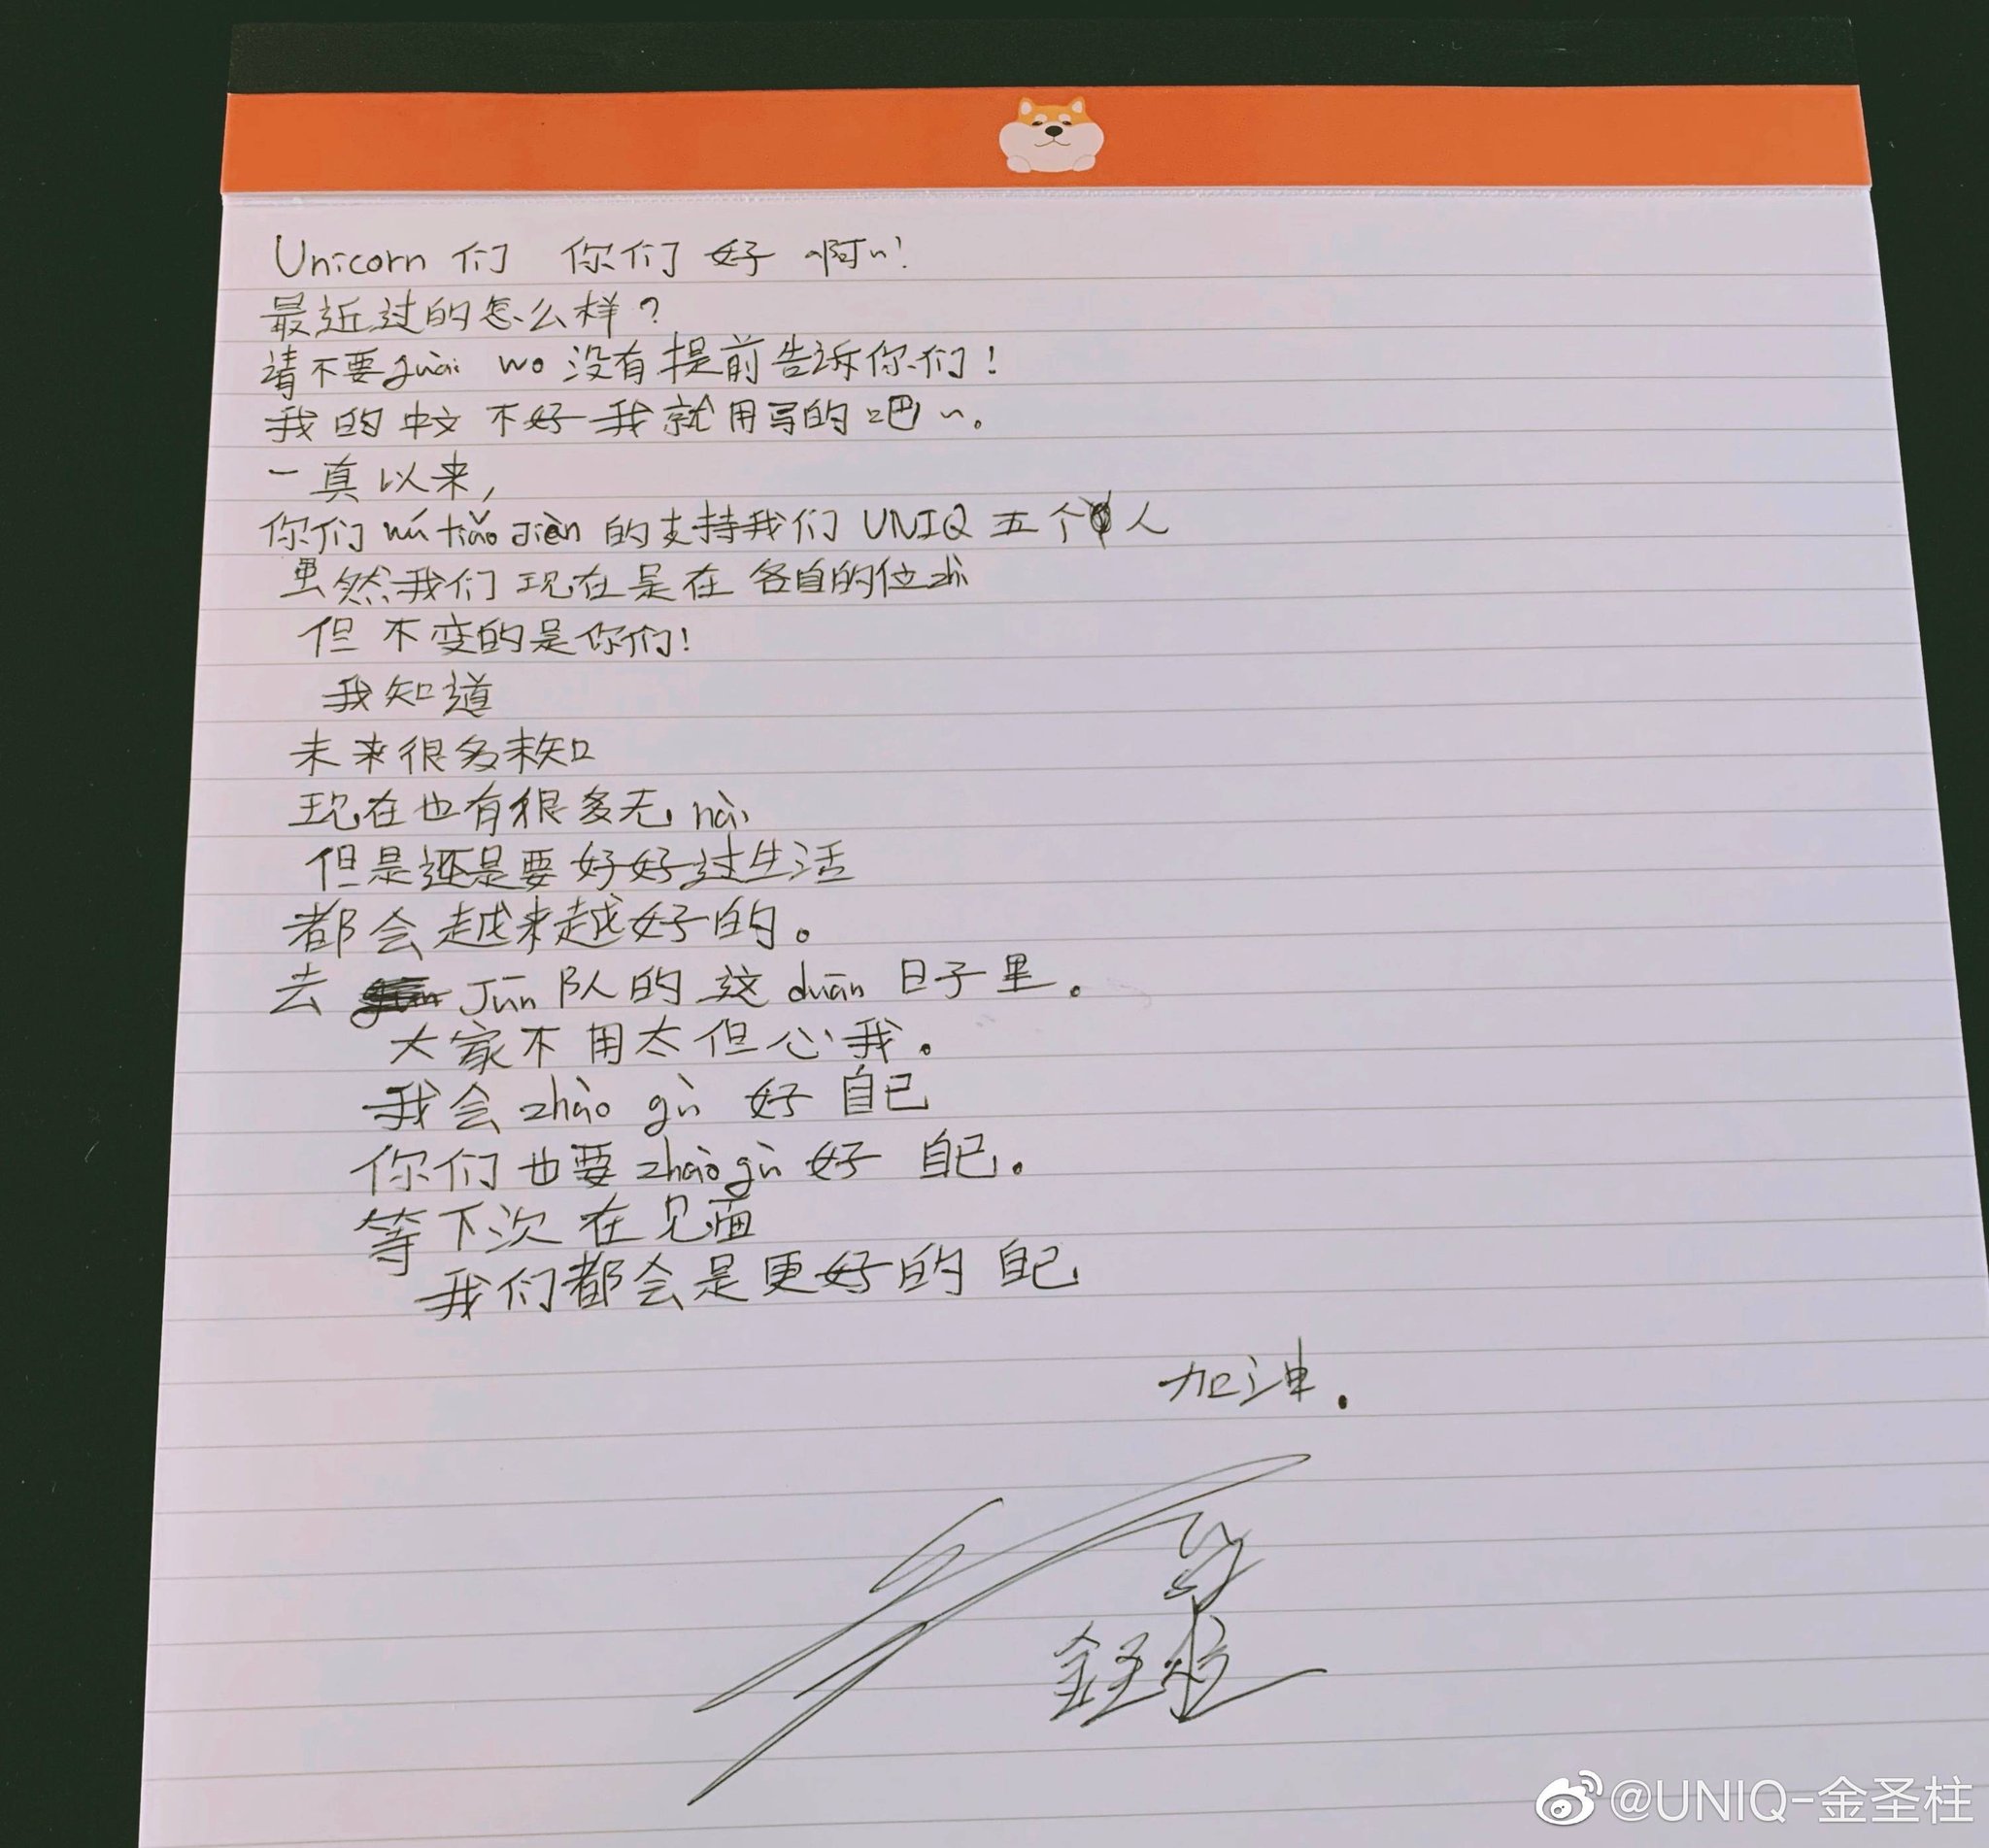 Unicorn 们 你们 好 啊~!
最近过的怎么样?
请不要guài wo 没有提前告诉你们!
我的中文不好我就用写的吧~。
一真以来,
你们wú tiǎo Jièn 的支持我们 UNIQ 五个人
虽然我们现在是在各自的位zhì
但不变的是你们!
我知道
未来很多未知
现在也有很多无nài
但是还是要好好过生活
都会越来越好的。
去 Jūn 队的这 duān 日子里。
大家不用太但心我。
我会 zhào gù 好 自己
你们也要 zhào gù 好 自己。
等下次在见面
我们都会是更好的 自己
加油.
金圣柱
@UNIQ-金圣柱